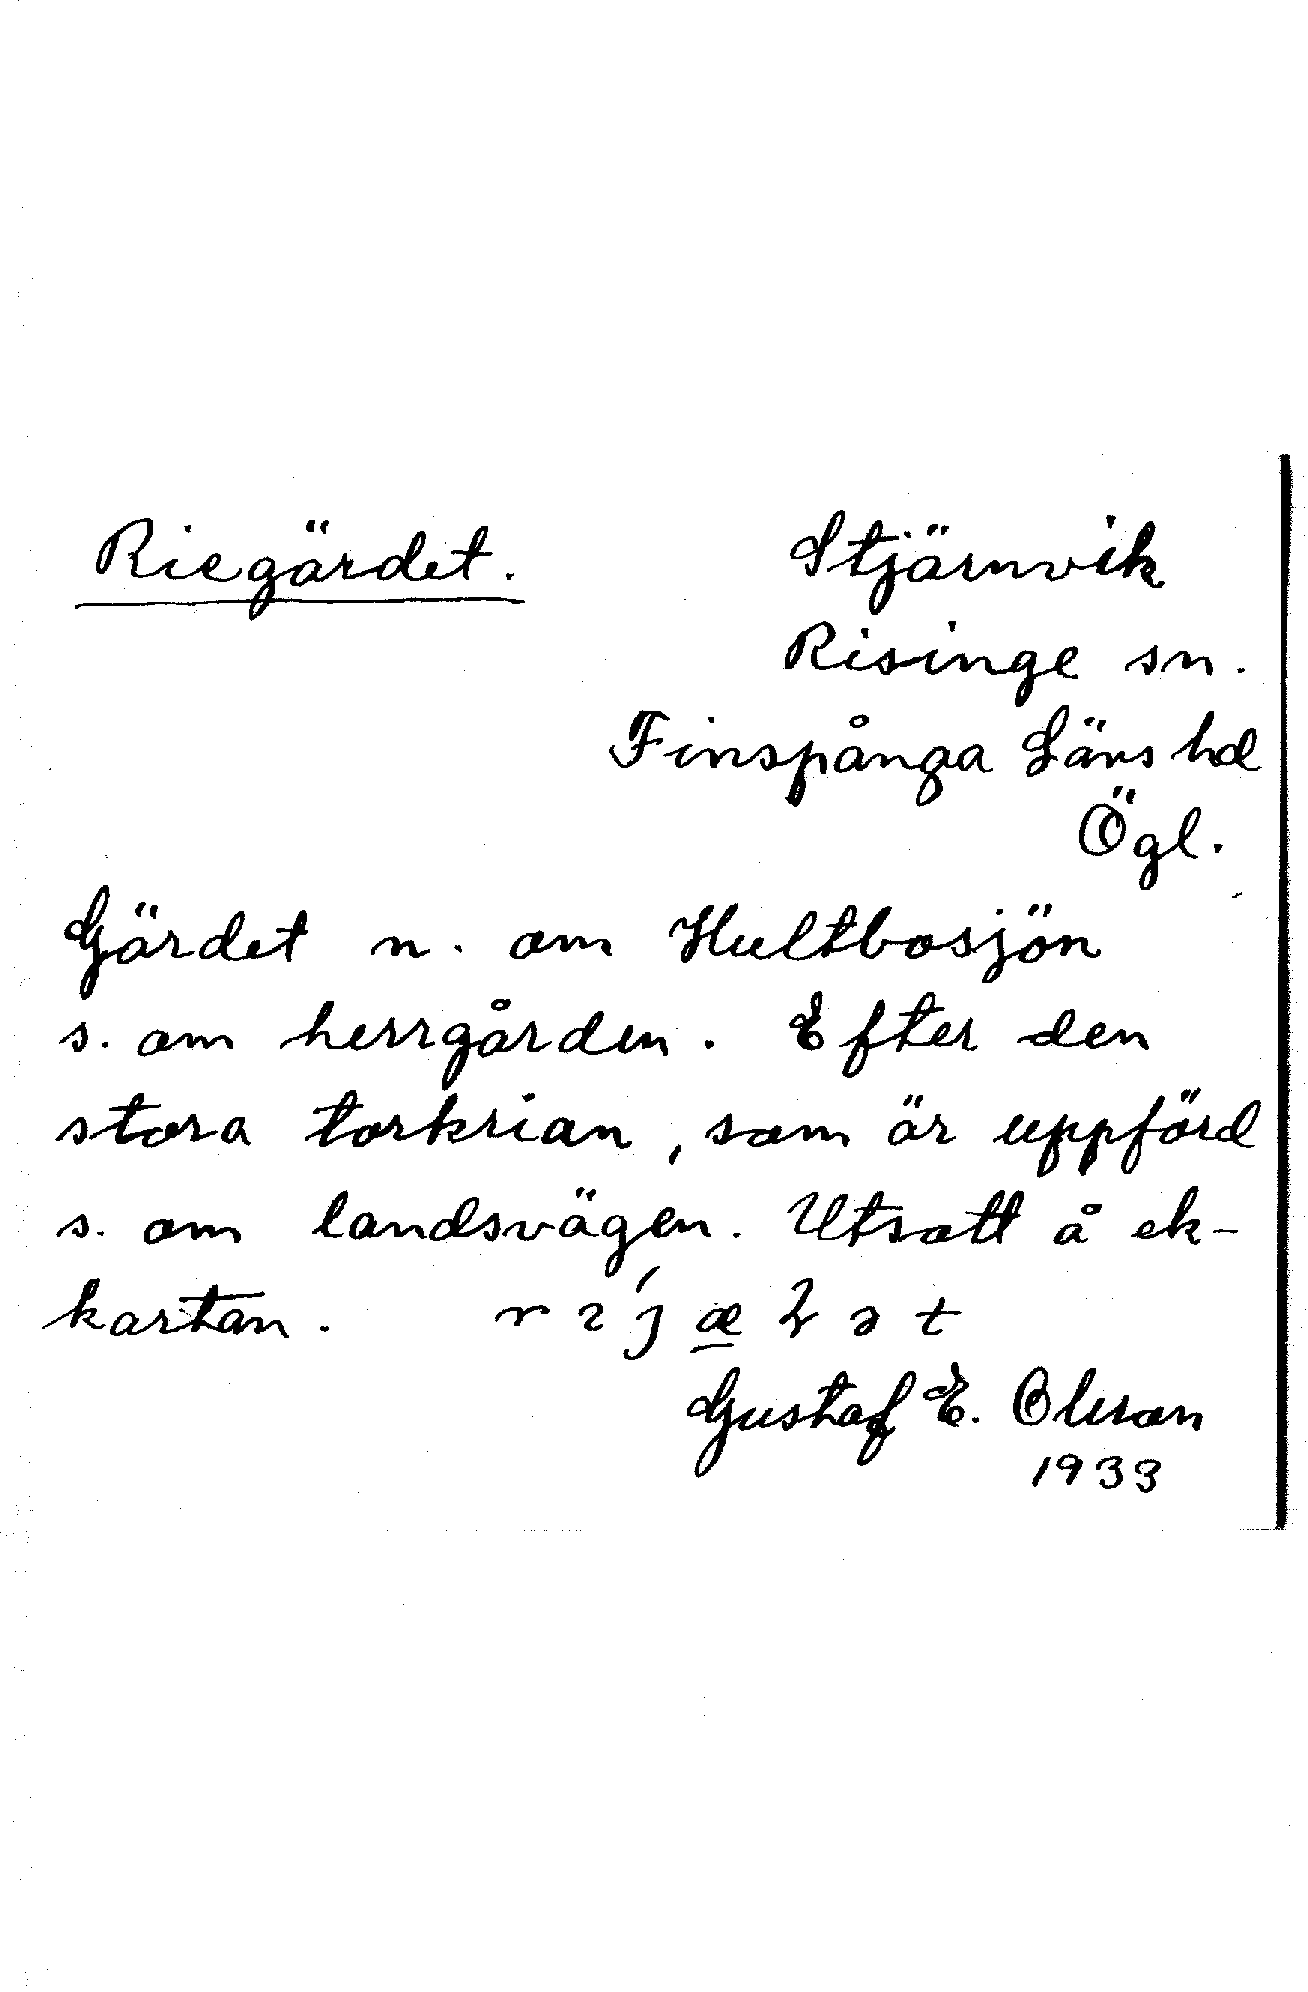 Riegärdet.
Stjärnvik
Risinge sn.
Finspånga Läns hd
Ögl.
Gärdet n. om Hultbosjön
s. om herrgården. Efter den
stora torkrian, som är uppförd
s. om landsvägen. Utsatt å ek-
kartan.
Gustaf E. Olsson
1933